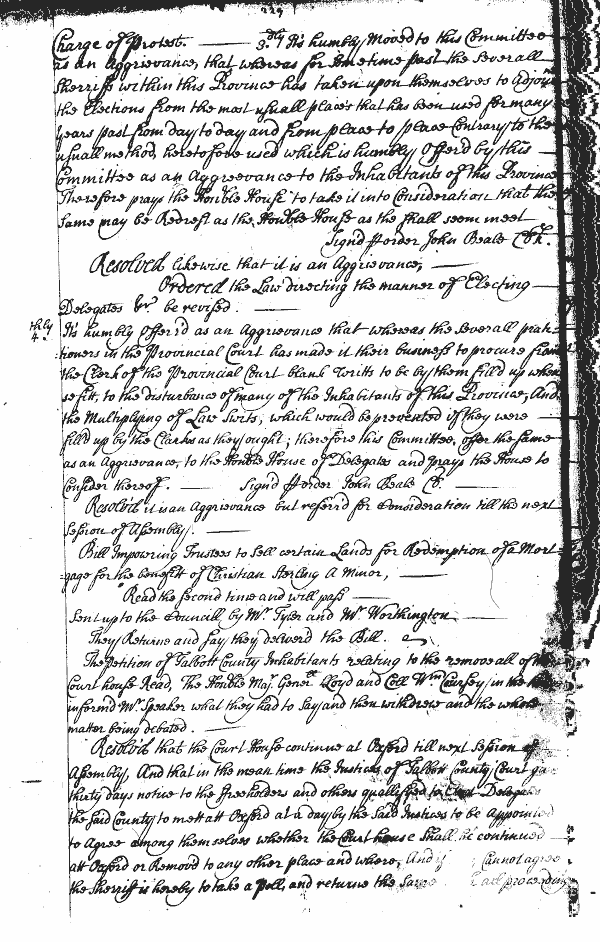 229
Charge of Protest. 3dly It's humbly Moved to this Committee
as an Aggrievance, that whereas for sometime past the Severall
Sherriffs within this Province has taken upon themselves to Adjourn
the Elections from the most usuall places that has been used for many
years past from day to day and from place to place Contrary to the
usuall method heretofore used which is humbly Offer'd by this
Committee as an Aggrievance to the Inhabitants of this Province
Therefore prays the Honble House to take it into Consideration that the
same may be Redrest as the Honble House as the shall seem meet
Signd p order John Beale Clk.
Resolved likewise that it is an Aggrievance,
Ordered the Law directing the manner of Electing
Delegates &c. be revised.
4thly It's humbly offer'd as an Aggrievance that whereas the severall prac-
titioners in the Provincial Court has made it their business to procure from
the Clerk of the Provincial Court blank Writts to be by them fill'd up when
se fitt, to the disturbance of many of the Inhabitants of this Province, And
the Multiplying of Law Suits, which would be prevented if they were
fill'd up by the Clarks as they ought; therefore this Committee, offer the same
as an Aggrievance, to the Honble House of Delegates and prays the House to
Consider thereof. Signd p order John Beale Cl.
Resolv'd it is an Aggrievance but referr'd for Consideration till the next
Session of Assembly.
Bill Impowring Trustees to Sell certain Lands for Redemption of a Mort-
gage for the benefitt of Christian Sterling A Minor,
Read the second time and will pass
Sent up to the Councill by Mr. Tyler and Mr. Worthington
They Returne and say they deliverd the Bill.
The Petition of Talbott County Inhabitants relating to the remove all of the
Court house Read, The Honble Maj. Generll Lloyd and Coll Wm Coursey in the house
inform'd Mr. Speaker what they had to Say and then withdrew and the whole
matter being debated.
Resolv'd that the Court House continue at Oxford till next Session of
Assembly, And that in the mean time the Justices of Talbott County Court give
thirty days notice to the freeholders and others qualified to Elect Delegates
the said County to mett att Oxford at a day by the Said Justices to be Appointed
to Agree among themselves whether the Court house Shall be continued
att Oxford or Remove to any other place and where, And Cannot agree
the Sherriff is hereby to take a poll, and returne the Same proceeding